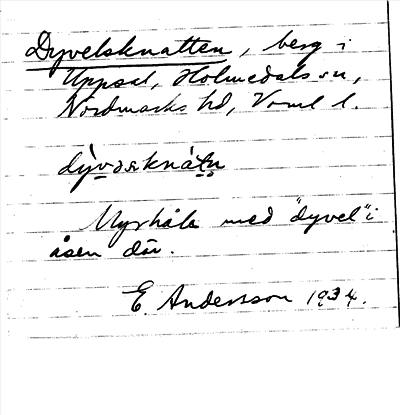 Dyvelsknatten, berg i
Uppsal, Holmedals sn,
Nordmarks hd, Vrml l.
dỳvəsknátn
Myrhåla med "dyvel" i
åsen där.
E. Andersson 1934.